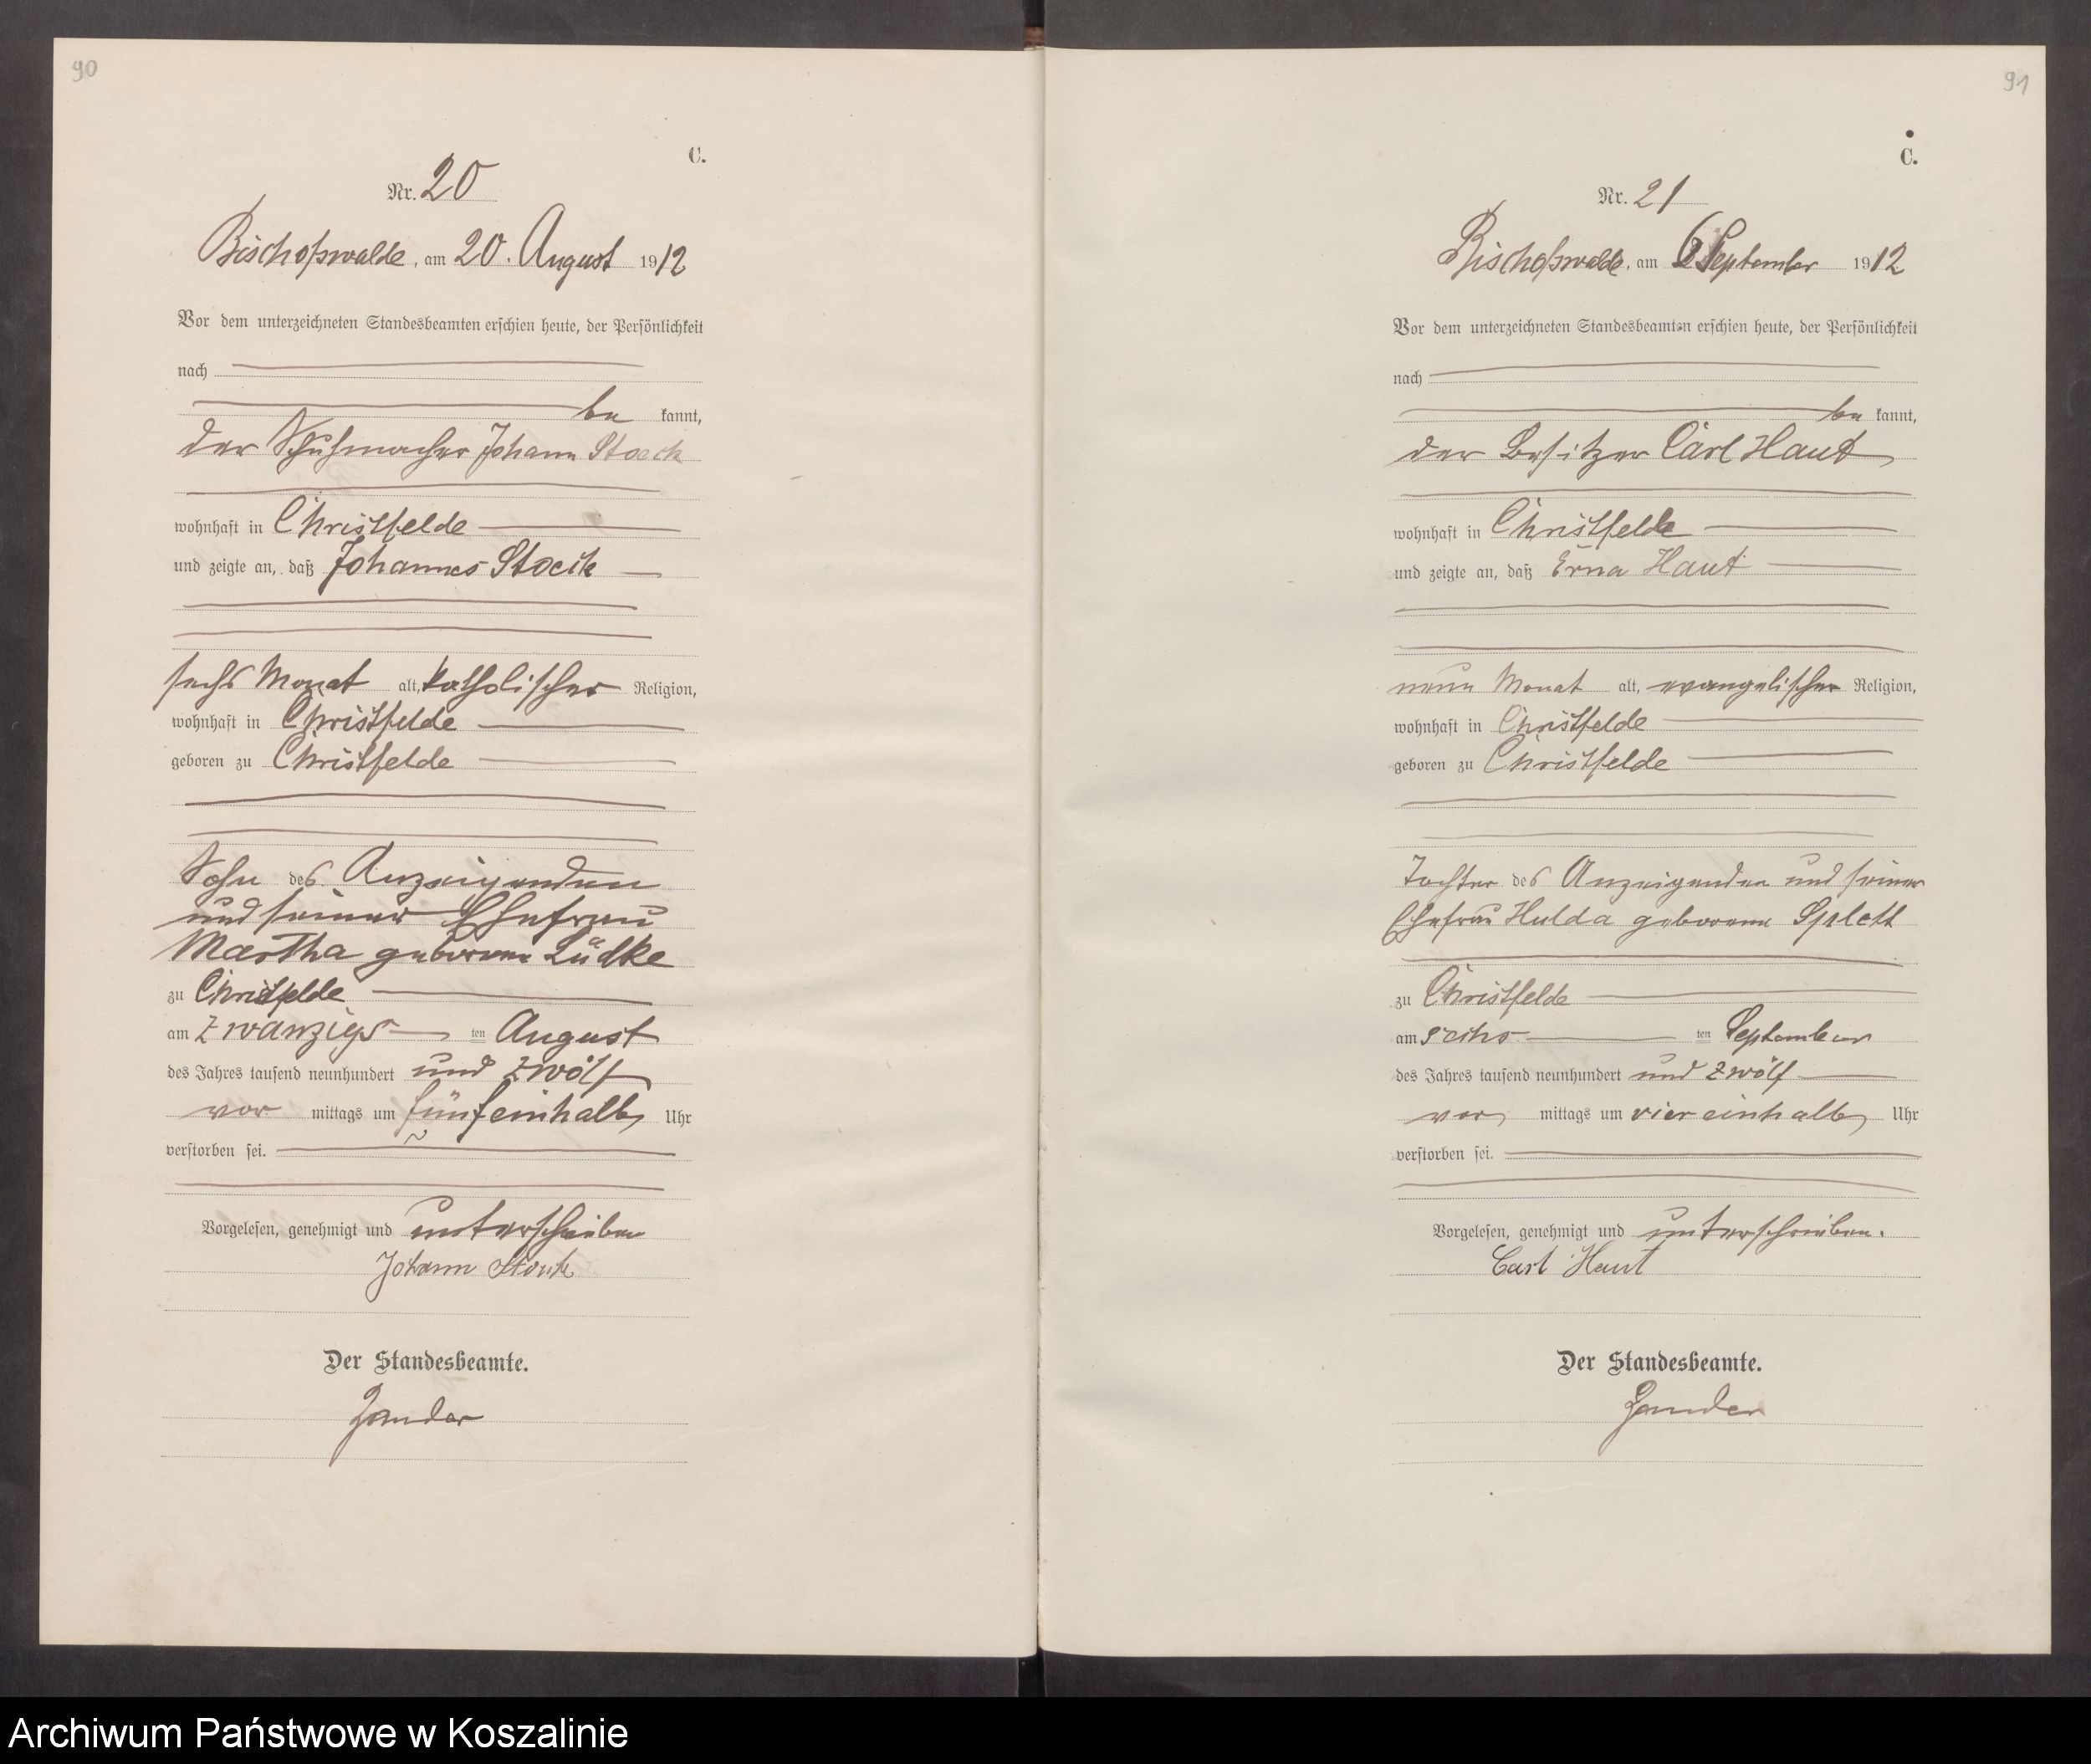 90
C.
Nr. 20
Bischofswalde, am 20. August 1912
Vor dem unterzeichneten Standesbeamten erschien heute, der Persönlichkeit
nach
be kannt,
der Schuhmacher Johann Stock
wohnhaft in Christfelde
und zeigte an, daß Johannes Stock
sechs Monat alt, katholischer Religion,
wohnhaft in Christfelde
geboren zu Christfelde
Sohn des Anzeigenden
und seiner Ehefrau
Martha geborene Lüdke
zu Christfelde
am zwanzigs ten August
des Jahres tausend neunhundert und zwölf
vor mittags um fünfeinhalb Uhr
verstorben sei.
Vorgelesen, genehmigt und unterschrieben
Johann Stock
Der Standesbeamte.
Zander
91
C.
Nr. 21
Bischofswalde, am 6 September 1912
Vor dem unterzeichneten Standesbeamten erschien heute, der Persönlichkeit
nach
be kannt,
der Besitzer Carl Haut
wohnhaft in Christfelde
und zeigte an, daß Erna Haut
neun Monat alt, evangelischer Religion,
wohnhaft in Christfelde
geboren zu Christfelde
Tochter des Anzeigenden und seiner
Ehefrau Hulda geborene Splett
zu Christfelde
am sechs ten September
des Jahres tausend neunhundert und zwölf
vor mittags um viereinhalb Uhr
verstorben sei.
Vorgelesen, genehmigt und unterschrieben.
Carl Haut
Der Standesbeamte.
Zander
Archiwum Państwowe w Koszalinie